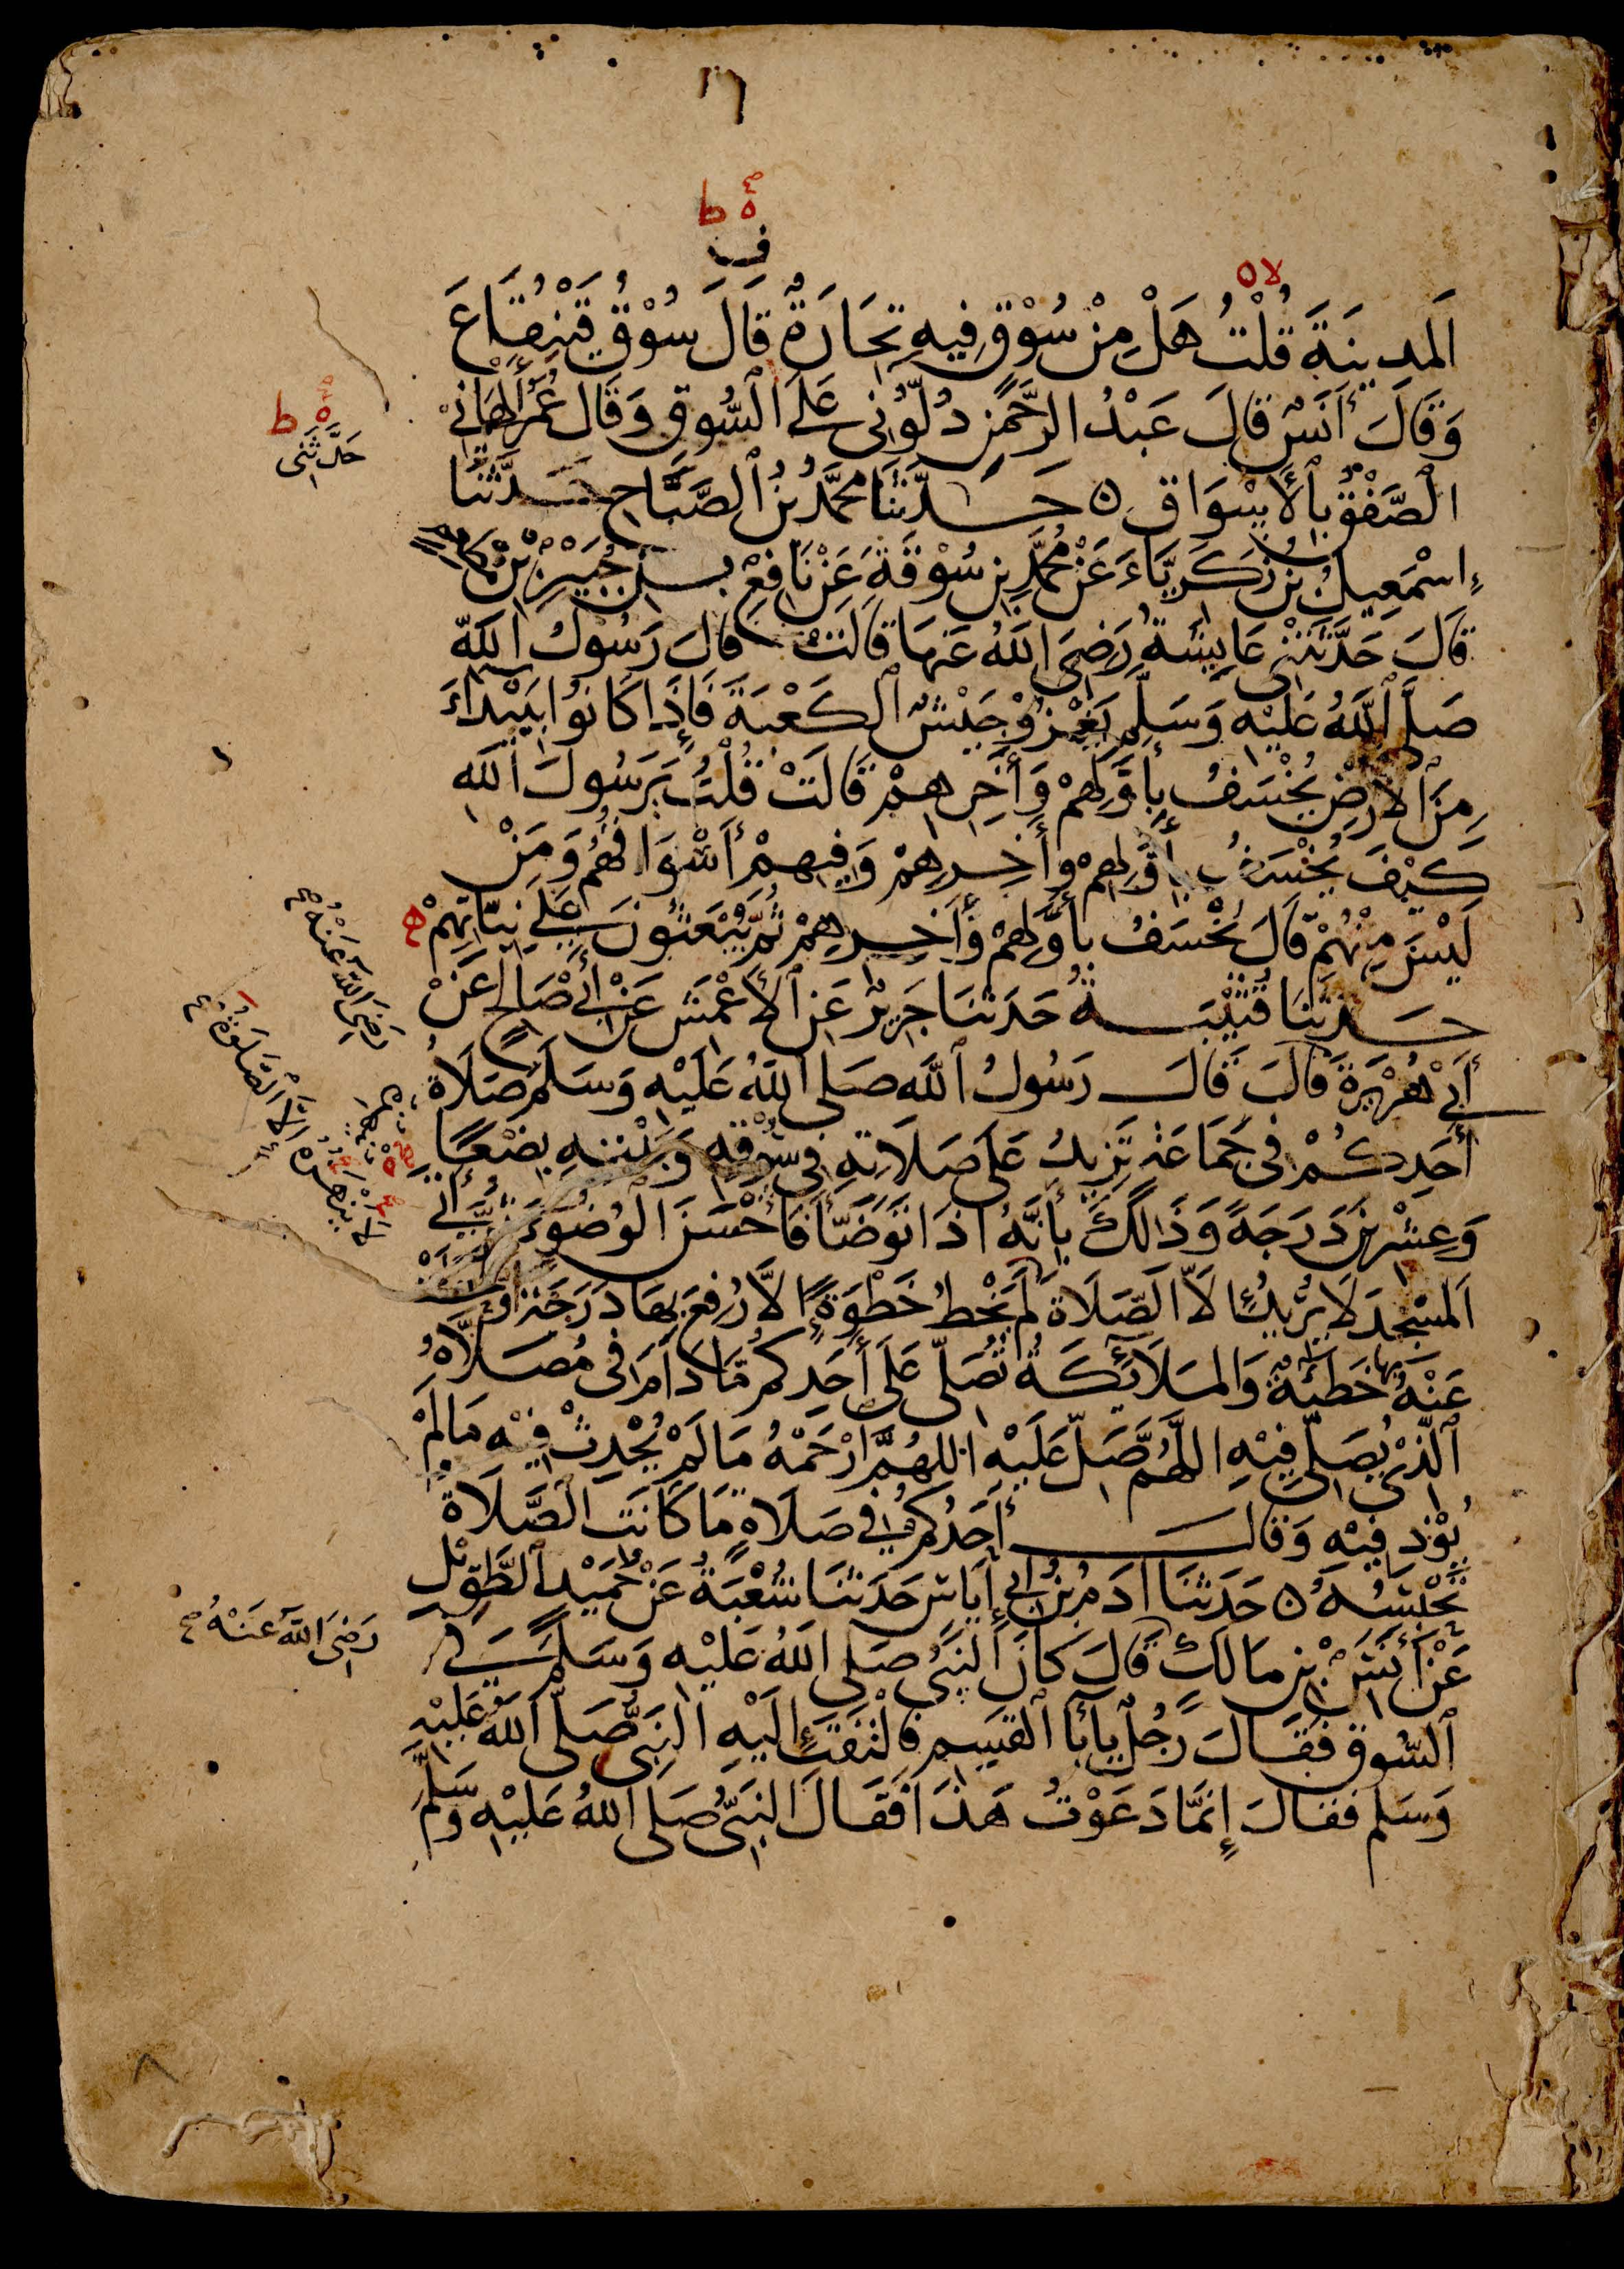 ١٦
ه ط
ف
لا ه
اَلمدينَةَ قُلْتُ هَلْ مِنْ سُوْقٍ فِيهِ تِجَارَةٌ قَالَ سُوْقُ قَيْنُقَاعَ
وَقَالَ أَنَسٌ قَالَ عَبْدُ الرَّحْمٰنِ دُلُّوْنِى عَلَى السُّوقِ وَقَالَ عُمَرُ أَلْهَانِىْ
الصَّفْقُ بِالأَسْوَاقِ ٥ حَدَّثَنَا مُحَمَّدُ بْنُ الصَّبَّاحِ حَدَّثَنَا
إِسْمٰعِيلُ بْنُ زَكَرِيَّاءَ عَنْ مُحَمَّدِ بنِ سُوْقَةَ عَنْ نَافِعِ بْنِ جُبَيْرِ بْنِ مُطْعِمٍ
قَالَ حَدَّثَتْنِى عَائِشَةُ رَضِىَ اللهُ عَنْهَا قَالَتْ قَالَ رَسُولُ اللهِ
صَلَّى اللهُ عَلَيْهِ وَسَلَّمَ يَغْزُوْ جَيْشٌ الكَعْبَةَ فَإِذَا كَانُوا بِبَيْدَاءَ
مِنَ الأَرْضِ يُخْسَفُ بِأَوَّلِهِمْ وَأٰخِرِهِمْ قَالَتْ قُلْتُ يَرَسُولَ اللهِ
كَيْفَ يُخْسَفُ بِأَوَّلِهِمْ وأٰخِرِهِمْ وَفِيهِمْ أَسْوَاقُهُمْ وَمَنْ
لَيْسَ مِنْهُمْ قَالَ يُخْسَفُ بأَوَّلِهِمْ وَأٰخِرِهِمْ ثُمَّ يُبْعَثُوْنَ عَلَى نِيَّاتِهِمْ
حَدَّثَنَا قُتَيْبَةُ حَدَثنَا جَرِيْرٌ عَنِ الأَعْمَشِ عَنْ أَبِىْ صَالِحٍ عَنْ
أَبِىْ هُرَيْرَةَ قَالَ قَالَ رَسُولُ اللهِ صَلى اللهُ عَلَيْهِ وَسَلَمَ صَلَاةُ
أَحَدِكُمْ فِى جَمَاعَةٍ تَزِيدُ عَلَى صَلَاتِهِ فِى سُوْقِهِ وَبَيْتِهِ بِضْعًا
وَعِشْرِيْنَ دَرَجَةً وَذَالِكَ بِأَنَّهُ اذَا تَوَضَّأَ فَأَحْسَنَ الوُضُوْءَ ثُمَّ أَتَى
اَلمَسْجِدَ لَا يُرِيْدُ إِلاَّ الصَّلَاةَ لَمْ يَخْطُ خَطْوَةً إِلاَّ رُفِعَ بِهَا دَرَجَةً أَوْ حُطَّتْ
عَنْهُ بها خَطِيئَةٌ وَالمَلَائِكَةُ تُصَلِّى عَلَى أَحَدِكُمْ مَّا دَامَ فِى مُصَلَّاهُ
الَّذِىْ يُصَلِّى فِيْهِ اللَّهُمَّ صَلِّ عَلَيْهِ اللهُمَّ ارْحَمْهُ مَا لَمْ يُحْدِثْ فِيْهِ مَا لَمْ
يُؤْذِ فِيْهِ وَقَالَ أَحَدُكُمْ فِى صَلَاةٍ مَا كَانَتِ الصَّلَاةُ
تَحْبِسُهُ ٥ حَدَثنَا اٰدَمُ بْنُ أَبِى إِيَاسٍ حَدَثنَا شُعْبَةُ عَنْ حُمَيْدِ الطَّوِيْلِ
عَنْ أَنَسِ بْنِ مَالكٍ قَالَ كَانَ النَبِىُّ صَلى اللهُ عَلَيْهِ وَسَلَمَ فِى
السُّوقِ فَقَالَ رَجُلٌ يٰأَبَا القٰسِمِ فَالْتَفَتَ إِلَيْهِ النَبِىُّ صَلَّى اللهُ عَلَيْهِ
وَسَلَم فقَالَ إِنَّمَا دَعَوْتُ هَذَا فَقَالَ النبِىُّ صَلى اللهُ عَلَيْهِ وَسَلَّمَ
ه ط
حَدَّثَنى
رَضِىَ اللهُ عَنْهُ
إِلَّا الصَّلَوةُ
لَا يَنْهَزُهُ
رَضِىَ اللهُ عَنْهُ